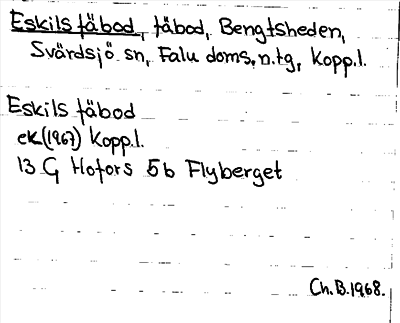 Eskils fäbod, fäbod, Bengtsheden,
Svärdsjö sn, Falu doms. n. tg, Kopp.l.
Eskils fäbod
ek (1967) Kopp.l.
13 G Hofors 5b Flyberget
Ch. B. 1968.